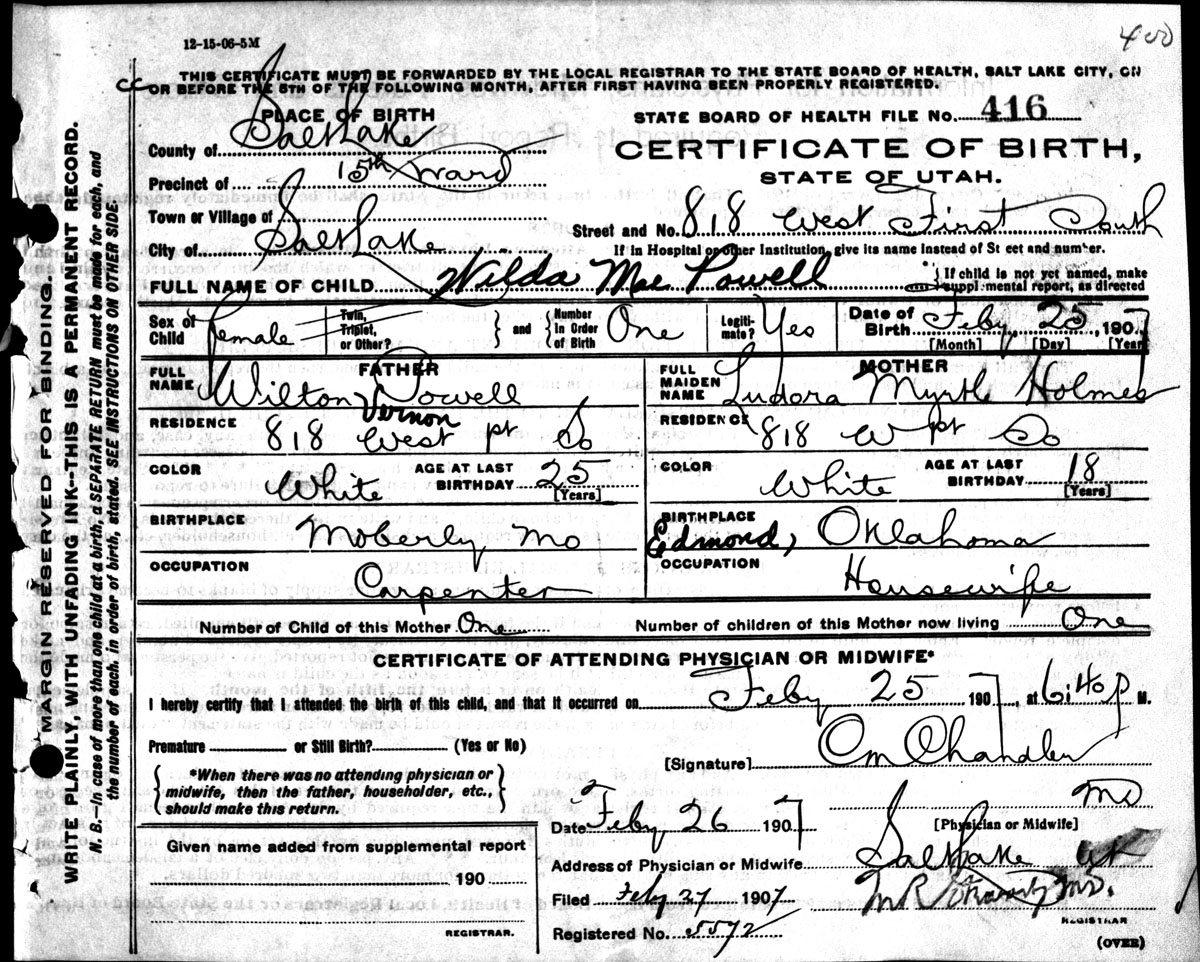 400
12-15-06-5M
THIS CERTIFICATE MUST BE FORWARDED BY THE LOCAL REGISTRAR TO THE STATE BOARD OF HEALTH, SALT LAKE CITY, ON
OR BEFORE THE 5TH OF THE FOLLOWING MONTH, AFTER FIRST HAVING BEEN PROPERLY REGISTERED.
PLACE OF BIRTH
STATE BOARD OF HEALTH FILE No. 416
County of Salt Lake
CERTIFICATE OF BIRTH,
STATE OF UTAH.
Precinct of 15th Ward
Town or Village of
Street and No. 818 West First South
City of Salt Lake
If in Hospital or other Institution, give its name instead of St eet and number.
FULL NAME OF CHILD Wilda Mae Powell
If child is not yet named, make
suppl mental report, as directed
Sex of Child Female
Twin, Triplet, or Other?
and Number In Order of Birth One
Legiti-mate? Yes
Date of Birth Feby 25, 1907
[Month] [Day] [Year]
FATHER
FULL NAME Wilton Powell
Vernon
RESIDENCE 818 West 1st So
COLOR White
AGE AT LAST BIRTHDAY 25
[Years]
BIRTHPLACE Moberly Mo
OCCUPATION Carpenter
MOTHER
FULL MAIDEN NAME Ludora Myrtle Holmes
RESIDENCE 818 W 1st So
COLOR White
AGE AT LAST BIRTHDAY 18
[Years]
BIRTHPLACE Edmond, Oklahoma
OCCUPATION Housewife
Number of Child of this Mother One
Number of children of this Mother now living One
CERTIFICATE OF ATTENDING PHYSICIAN OR MIDWIFE*
I hereby certify that I attended the birth of this child, and that it occurred on Feby 25 1907, at 6:40 p M.
Premature or Still Birth? (Yes or No)
[Signature] Om Chandler
*When there was no attending physician or
midwife, then the father, householder, etc.,
should make this return.
MD
[Physician or Midwife]
Date Feby 26 1907
Given name added from supplemental report
190
REGISTRAR.
Address of Physician or Midwife Salt Lake Ut
Filed Feby 27 1907
M.D.
REGISTRAR
Registered No. 5572
(OVER)
MARGIN RESERVED FOR BINDING.
WRITE PLAINLY, WITH UNFADING INK--THIS IS A PERMANENT RECORD.
N. B.--In case of more than one child at a birth, a SEPARATE RETURN must be made for each, and
the number of each, in order of birth, stated. SEE INSTRUCTIONS ON OTHER SIDE.